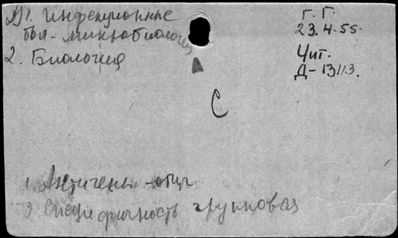 1. Инфекционные
бол. - микробиология
2. Биология
Г. Г.
23.4.55.
Чит.
Д-13113.
С
1. Антигены - общ.
2. Специфичность групповая